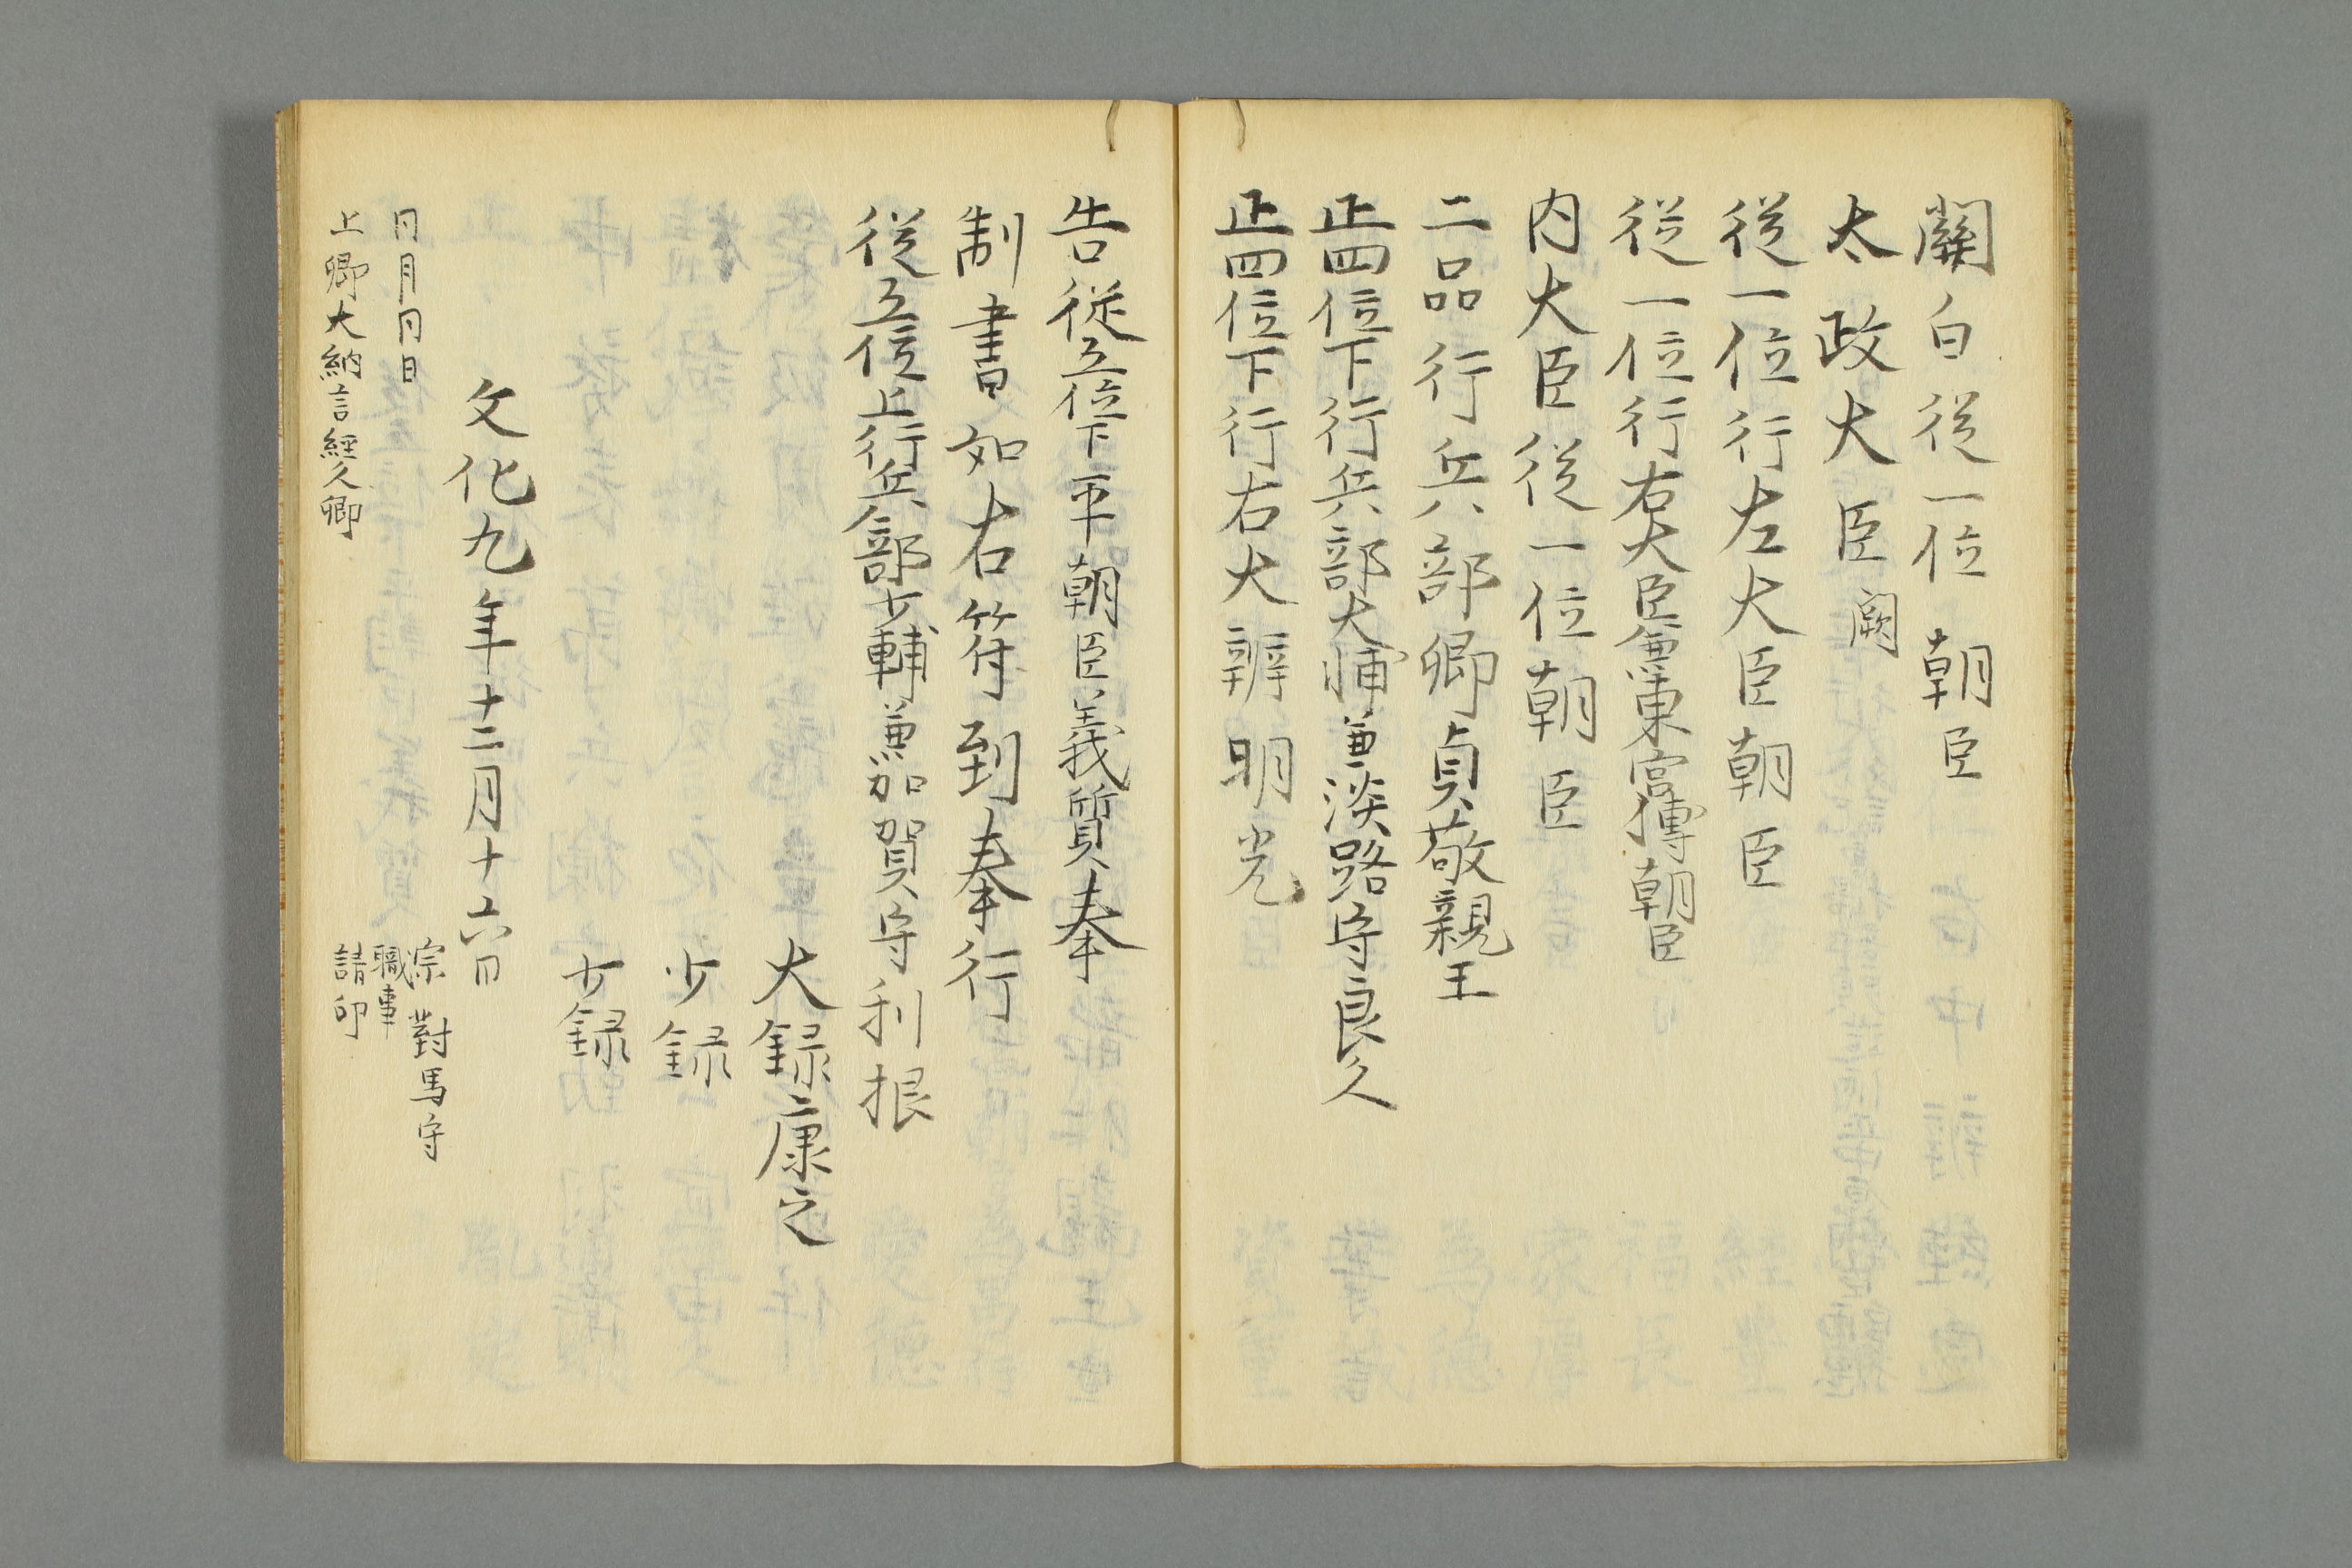 關白從一位朝臣
太政大臣闕
從一位行左大臣朝臣
從一位行右大臣兼東宮傅朝臣
内大臣從一位朝臣
二品行兵部卿貞敬親王
正四位下行兵部大輔兼淡路守良久
正四位下行右大辨明光
告從五位下平朝臣義質奉
制書如右符到奉行
從五位上行兵部少輔兼加賀守利根
大録康之
少録
少録
文化九年十二月十六日
宗對馬守
職事
請印
同月同日
上卿大納言經久卿